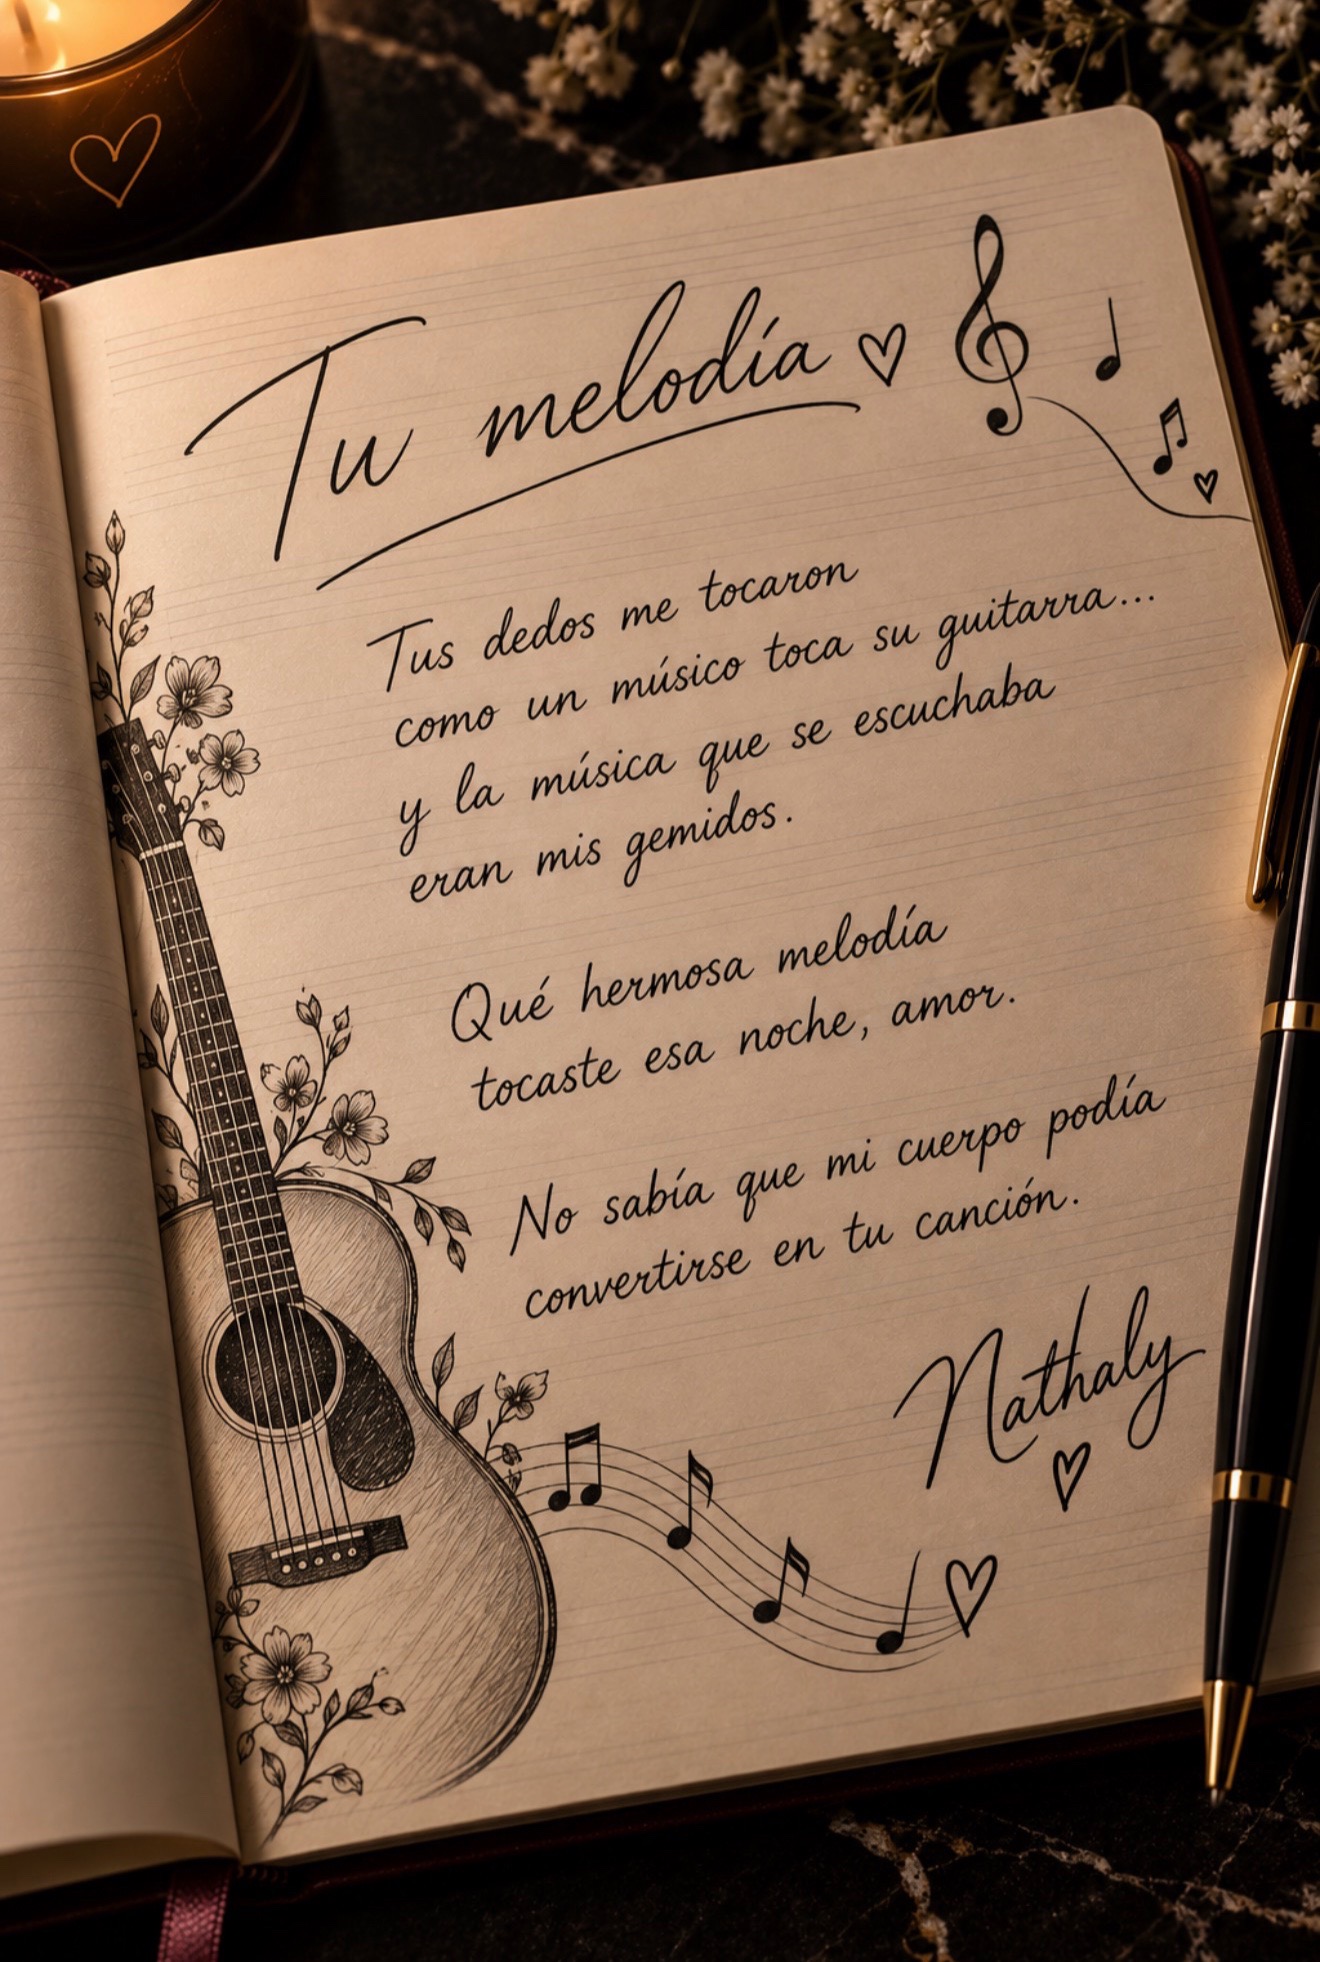 Tu melodía
Tus dedos me tocaron
como un músico toca su guitarra...
y la música que se escuchaba
eran mis gemidos.
Qué hermosa melodía
tocaste esa noche, amor.
No sabía que mi cuerpo podía
convertirse en tu canción.
Nathaly